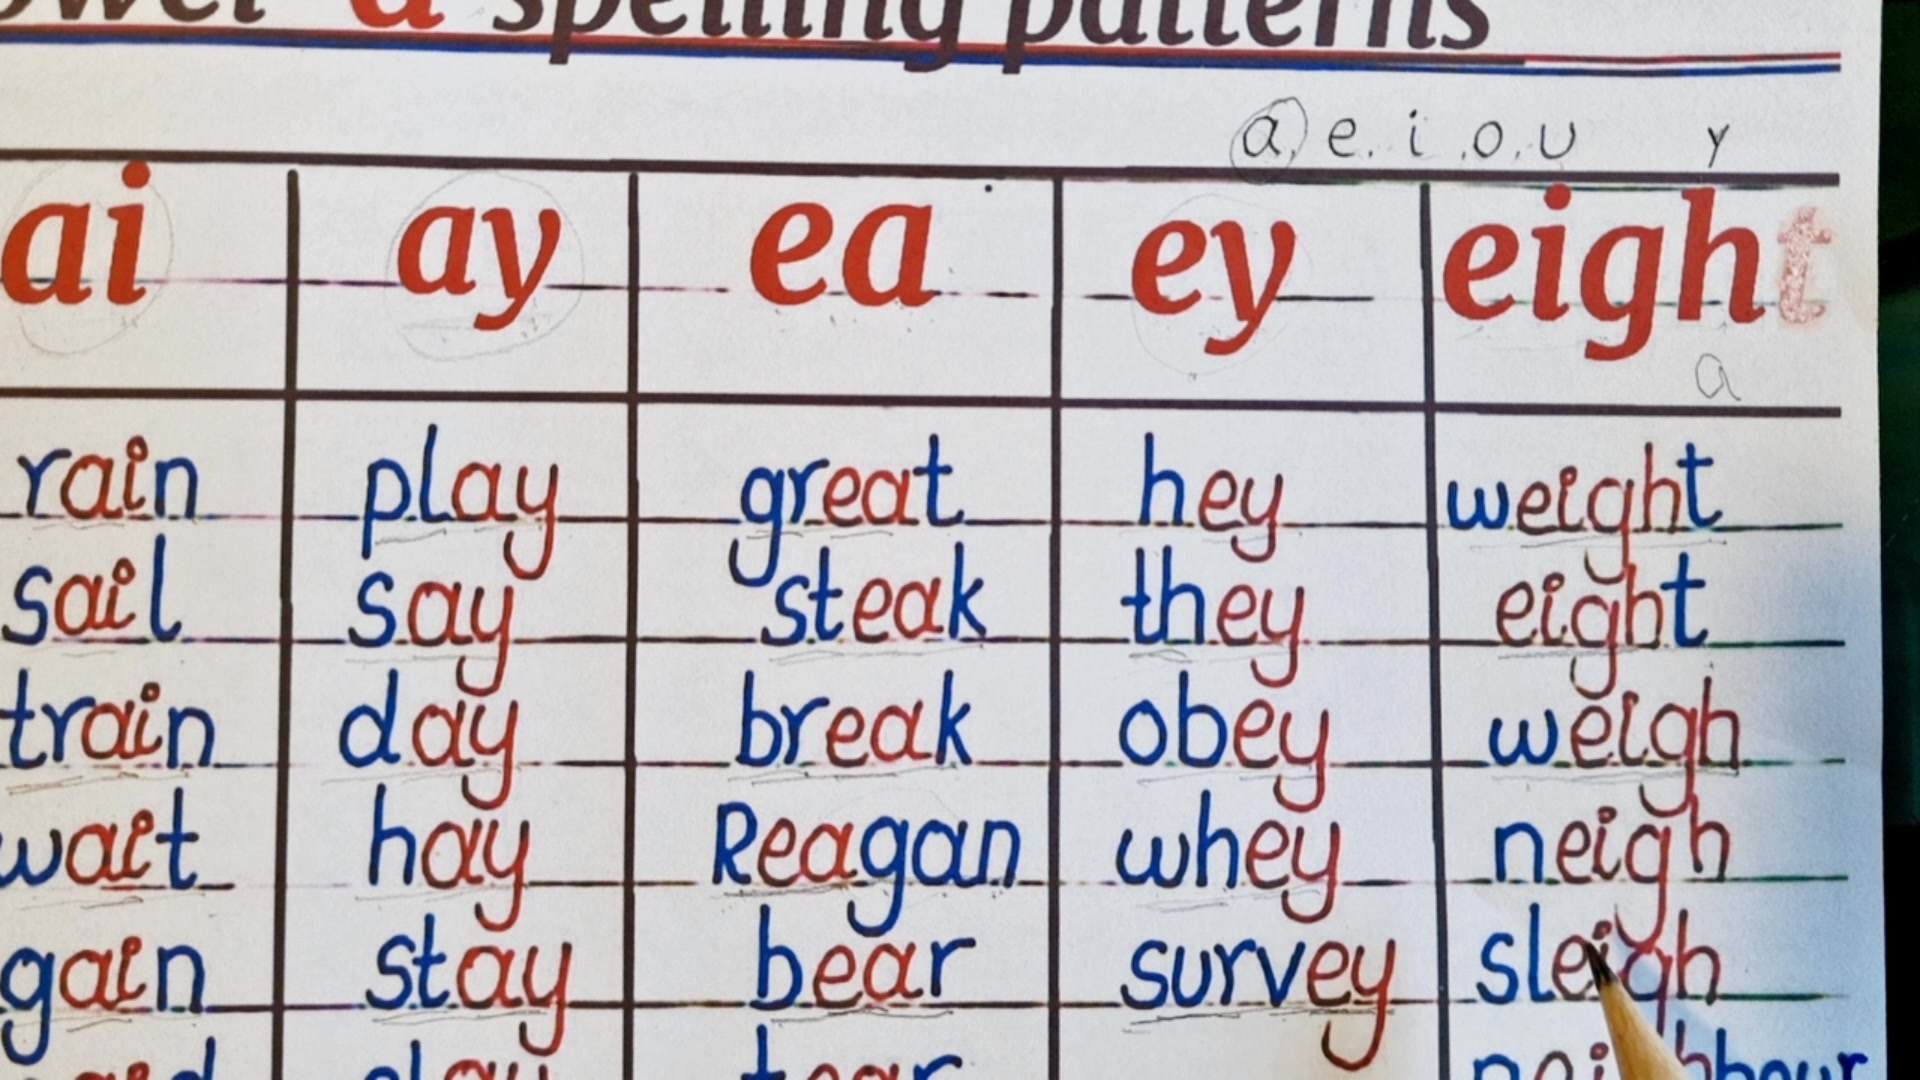 a spelling patterns
a, e, i, o, u y
ai ay ea ey eight
a
rain play great hey weight
sail say steak they eight
train day break obey weigh
wait hay Reagan whey neigh
gain stay bear survey sleigh